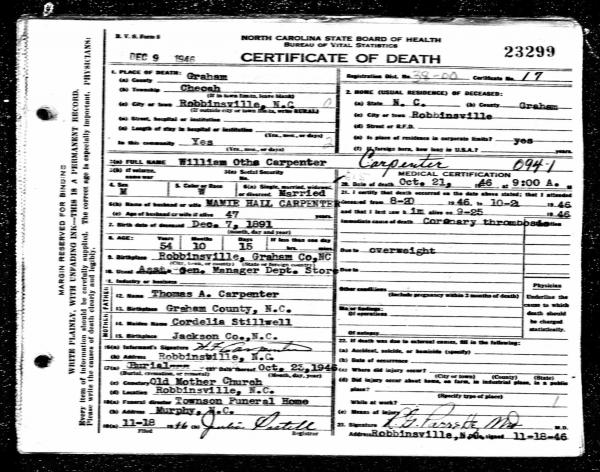 R. V. S. Form 8
NORTH CAROLINA STATE BOARD OF HEALTH
BUREAU OF VITAL STATISTICS
DEC 9 1946
CERTIFICATE OF DEATH
23299
Registration Dist. No. 38-00 Certificate No. 17
1. PLACE OF DEATH:
(a) County Graham
(b) Township Cheoah
(If in town limits, leave blank)
(c) City or town Robbinsville, N.C
(If outside city or town limits, write RURAL)
(d) Street, hospital or institution
(e) Length of stay in hospital or institution
(Yrs., mos., or days)
In this community Yes
(Yrs., mos., or days)
2. HOME (USUAL RESIDENCE) OF DECEASED:
(a) State N. C. (b) County Graham
(c) City or town Robbinsville
(d) Street or R.F.D.
(e) Is place of residence in corporate limits? yes
(f) If foreign born, how long in U.S.A.?
3(a) FULL NAME William Otha Carpenter
Carpenter 094-1
3(b) If veteran, name war
3(c) Social Security No.
4. Sex M
5. Color or Race W
6(a) Single, married, widowed, or divorced Married
6(b) Name of husband or wife MAMIE HALL CARPENTER
6(c) Age of husband or wife if alive 47 years
7. Birth date of deceased Dec. 7, 1891
(month, day and year)
8. AGE: Years Months Days If less than one day
54 10 15 hrs. min.
9. Birthplace Robbinsville, Graham Co, NC
(City, town, or county) (State or foreign country)
10. Usual Occupation Asst. Gen. Manager Dept. Store
11. Industry or business
FATHER
12. Name Thomas A. Carpenter
13. Birthplace Graham County, N.C.
MOTHER
14. Maiden Name Cordelia Stillwell
15. Birthplace Jackson Co., N.C.
16(a) Informant's Signature
(b) Address Robbinsville, N.C.
17(a) Burial (b) Date thereof Oct. 23, 1946
(Burial, cremation, or removal) (Month, day, year)
(c) Cemetery Old Mother Church
(d) Location Robbinsville, N.C.
18(a) Funeral director Townson Funeral Home
(b) Address Murphy, N.C.
19(a) 11-18 1946 (b) Julia
Filed Registrar
MEDICAL CERTIFICATION
20. Date of death Oct. 21, 46 at 9:00 A. M.
21. I certify that death occurred on the date above stated; that I attended
deceased from 8-20 1946, to 10-2 1946
and that I last saw him alive on 9-25 1946
Immediate cause of death Coronary thrombosis
Due to overweight
Due to
Other conditions
(Include pregnancy within 3 months of death)
Major findings:
Of operations
Of autopsy
Physician
Underline the cause to which death should be charged statistically.
22. If death was due to external causes, fill in the following:
(a) Accident, suicide, or homicide (specify)
(b) Date of occurrence
(c) Where did injury occur?
(City or town) (County) (State)
(d) Did injury occur about home, on farm, in industrial place, in a public place?
(Specify type of place)
While at work?
(e) Means of injury
23. Signature M.D.
Address Robbinsville, N.C. signed 11-18-46
MARGIN RESERVED FOR BINDING
WRITE PLAINLY, WITH UNFADING INK—THIS IS A PERMANENT RECORD.
Every item of information should be carefully supplied. The correct age is especially important. PHYSICIANS:
Please write the causes of death clearly and legibly.